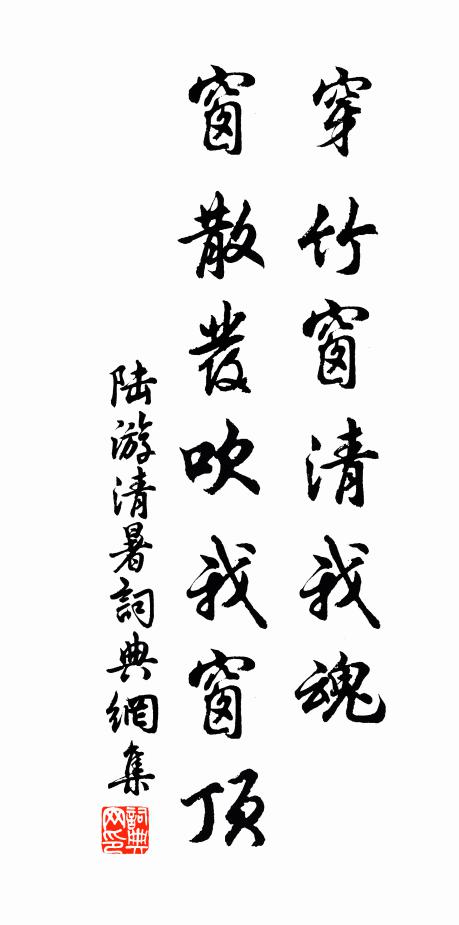 穿竹窗清我魂
窗散發吹我窗頂
陆游清暑詞典網集
詞典
网印